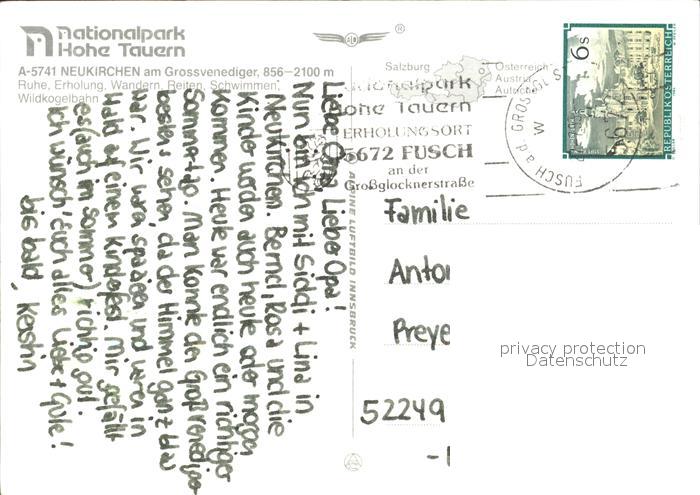 Nationalpark
Hohe Tauern
A-5741 NEUKIRCHEN am Grossvenediger, 856–2100 m
Ruhe, Erholung, Wandern, Reiten, Schwimmen,
Wildkogelbahn
Liebe Oma, Lieber Opa!
Nun bin ich mit Siddi + Lina in
Neukirchen. Bernd, Rosa und die
Kinder werden auch heute oder morgen
kommen. Heute war endlich ein richtiger
Sommertag. Man konnte den Großvenediger
bestens sehen, da der Himmel ganz blau
war. Wir waren spazieren und waren in
Wald auf einem Kinderfest. Mir gefällt
es (auch im Sommer) richtig gut.
Ich wünsch' Euch alles Liebe + Gute!
bis bald, Kerstin
ALPINE LUFTBILD INNSBRUCK
®
Salzburg
Österreich
Austria
Nationalpark
Hohe Tauern
ERHOLUNGSORT
5672 FUSCH
an der
Großglocknerstraße
FUSCH a.d. GROSSGL.S
6 S
REPUBLIK ÖSTERREICH
Familie
Anto
Preye
52249
privacy protection
Datenschutz